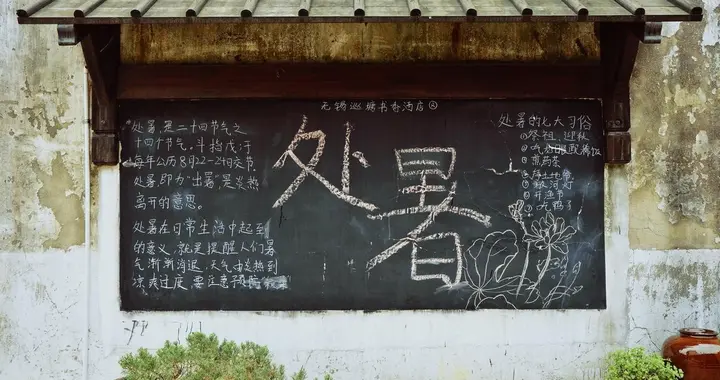 无锡巡塘书香酒店
处暑
处暑，是二十四节气之
十四个节气，斗指戊汙
每年公历8月22-24日交节
处暑，即为“出暑”，是炎热
离开的意思。
处暑在日常生活中起到
的意义，就是提醒人们暑
气渐渐消退，天气由炎热到
凉爽过度，要注意预防
处暑的七大习俗
①祭祖，迎秋
③煎药茶
④拜土地爷
⑤放河灯
⑥开渔节
吃鸭子